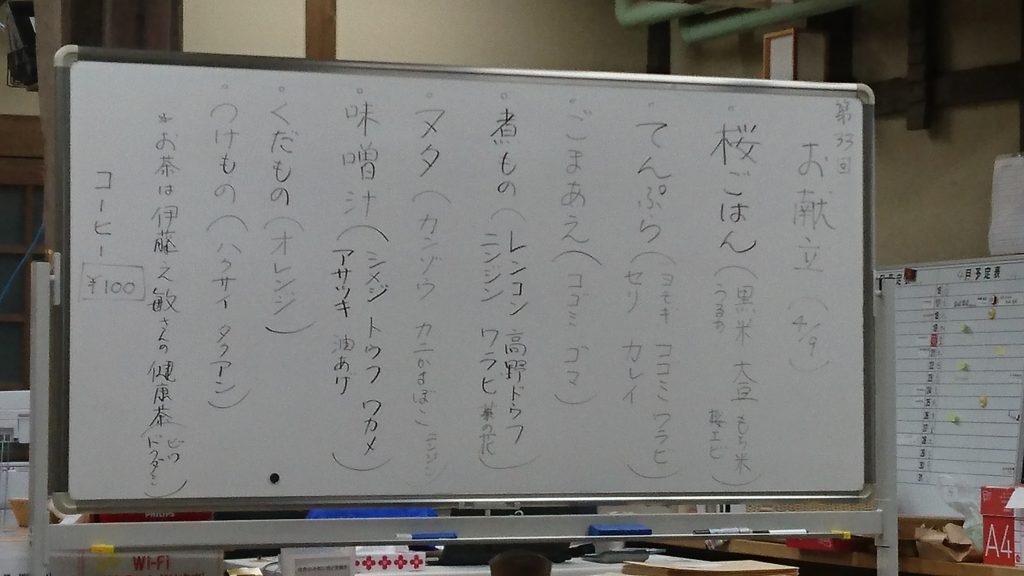 第33回
お献立 (4/9)
桜ごはん (黒米 大豆 もち米
うるち 桜エビ)
てんぷら (ヨモギ コゴミ ワラビ
セリ カレイ)
ごまあえ (コゴミ ゴマ)
煮もの (レンコン 高野ドウフ
ニンジン ワラビ 菜の花)
ヌタ (カンゾウ カニかまぼこ ニンジン)
味噌汁 (シメジ トウフ ワカメ
アサツキ 油あげ)
くだもの (オレンジ)
つけもの (ハクサイ タクアン)
*お茶は伊藤
敏さんの健康茶
コーヒー ¥100
月予定表
Wi-Fi
PHILIPS
A4